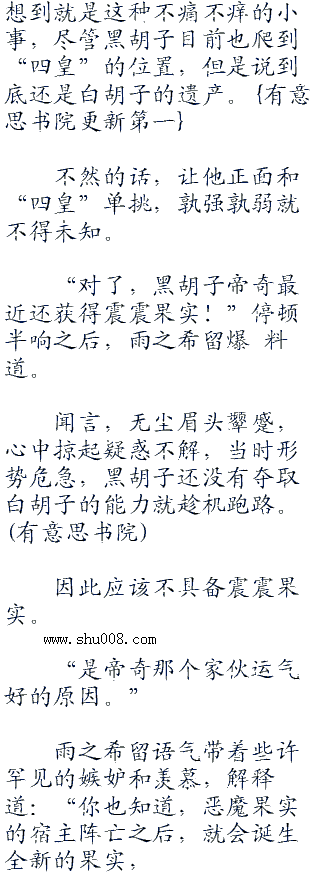 想到就是这种不痛不痒的小
事，尽管黑胡子目前也爬到
“四皇”的位置，但是说到
底还是白胡子的遗产。{有意
思书院更新第一}
不然的话，让他正面和
“四皇”单挑，孰强孰弱就
不得未知。
“对了，黑胡子帝奇最
近还获得震震果实！”停顿
半响之后，雨之希留爆 料
道。
闻言，无尘眉头颦蹙，
心中掠起疑惑不解，当时形
势危急，黑胡子还没有夺取
白胡子的能力就趁机跑路。
(有意思书院)
因此应该不具备震震果
实。
www.shu008.com
“是帝奇那个家伙运气
好的原因。”
雨之希留语气带着些许
罕见的嫉妒和羡慕，解释
道：“你也知道，恶魔果实
的宿主阵亡之后，就会诞生
全新的果实，